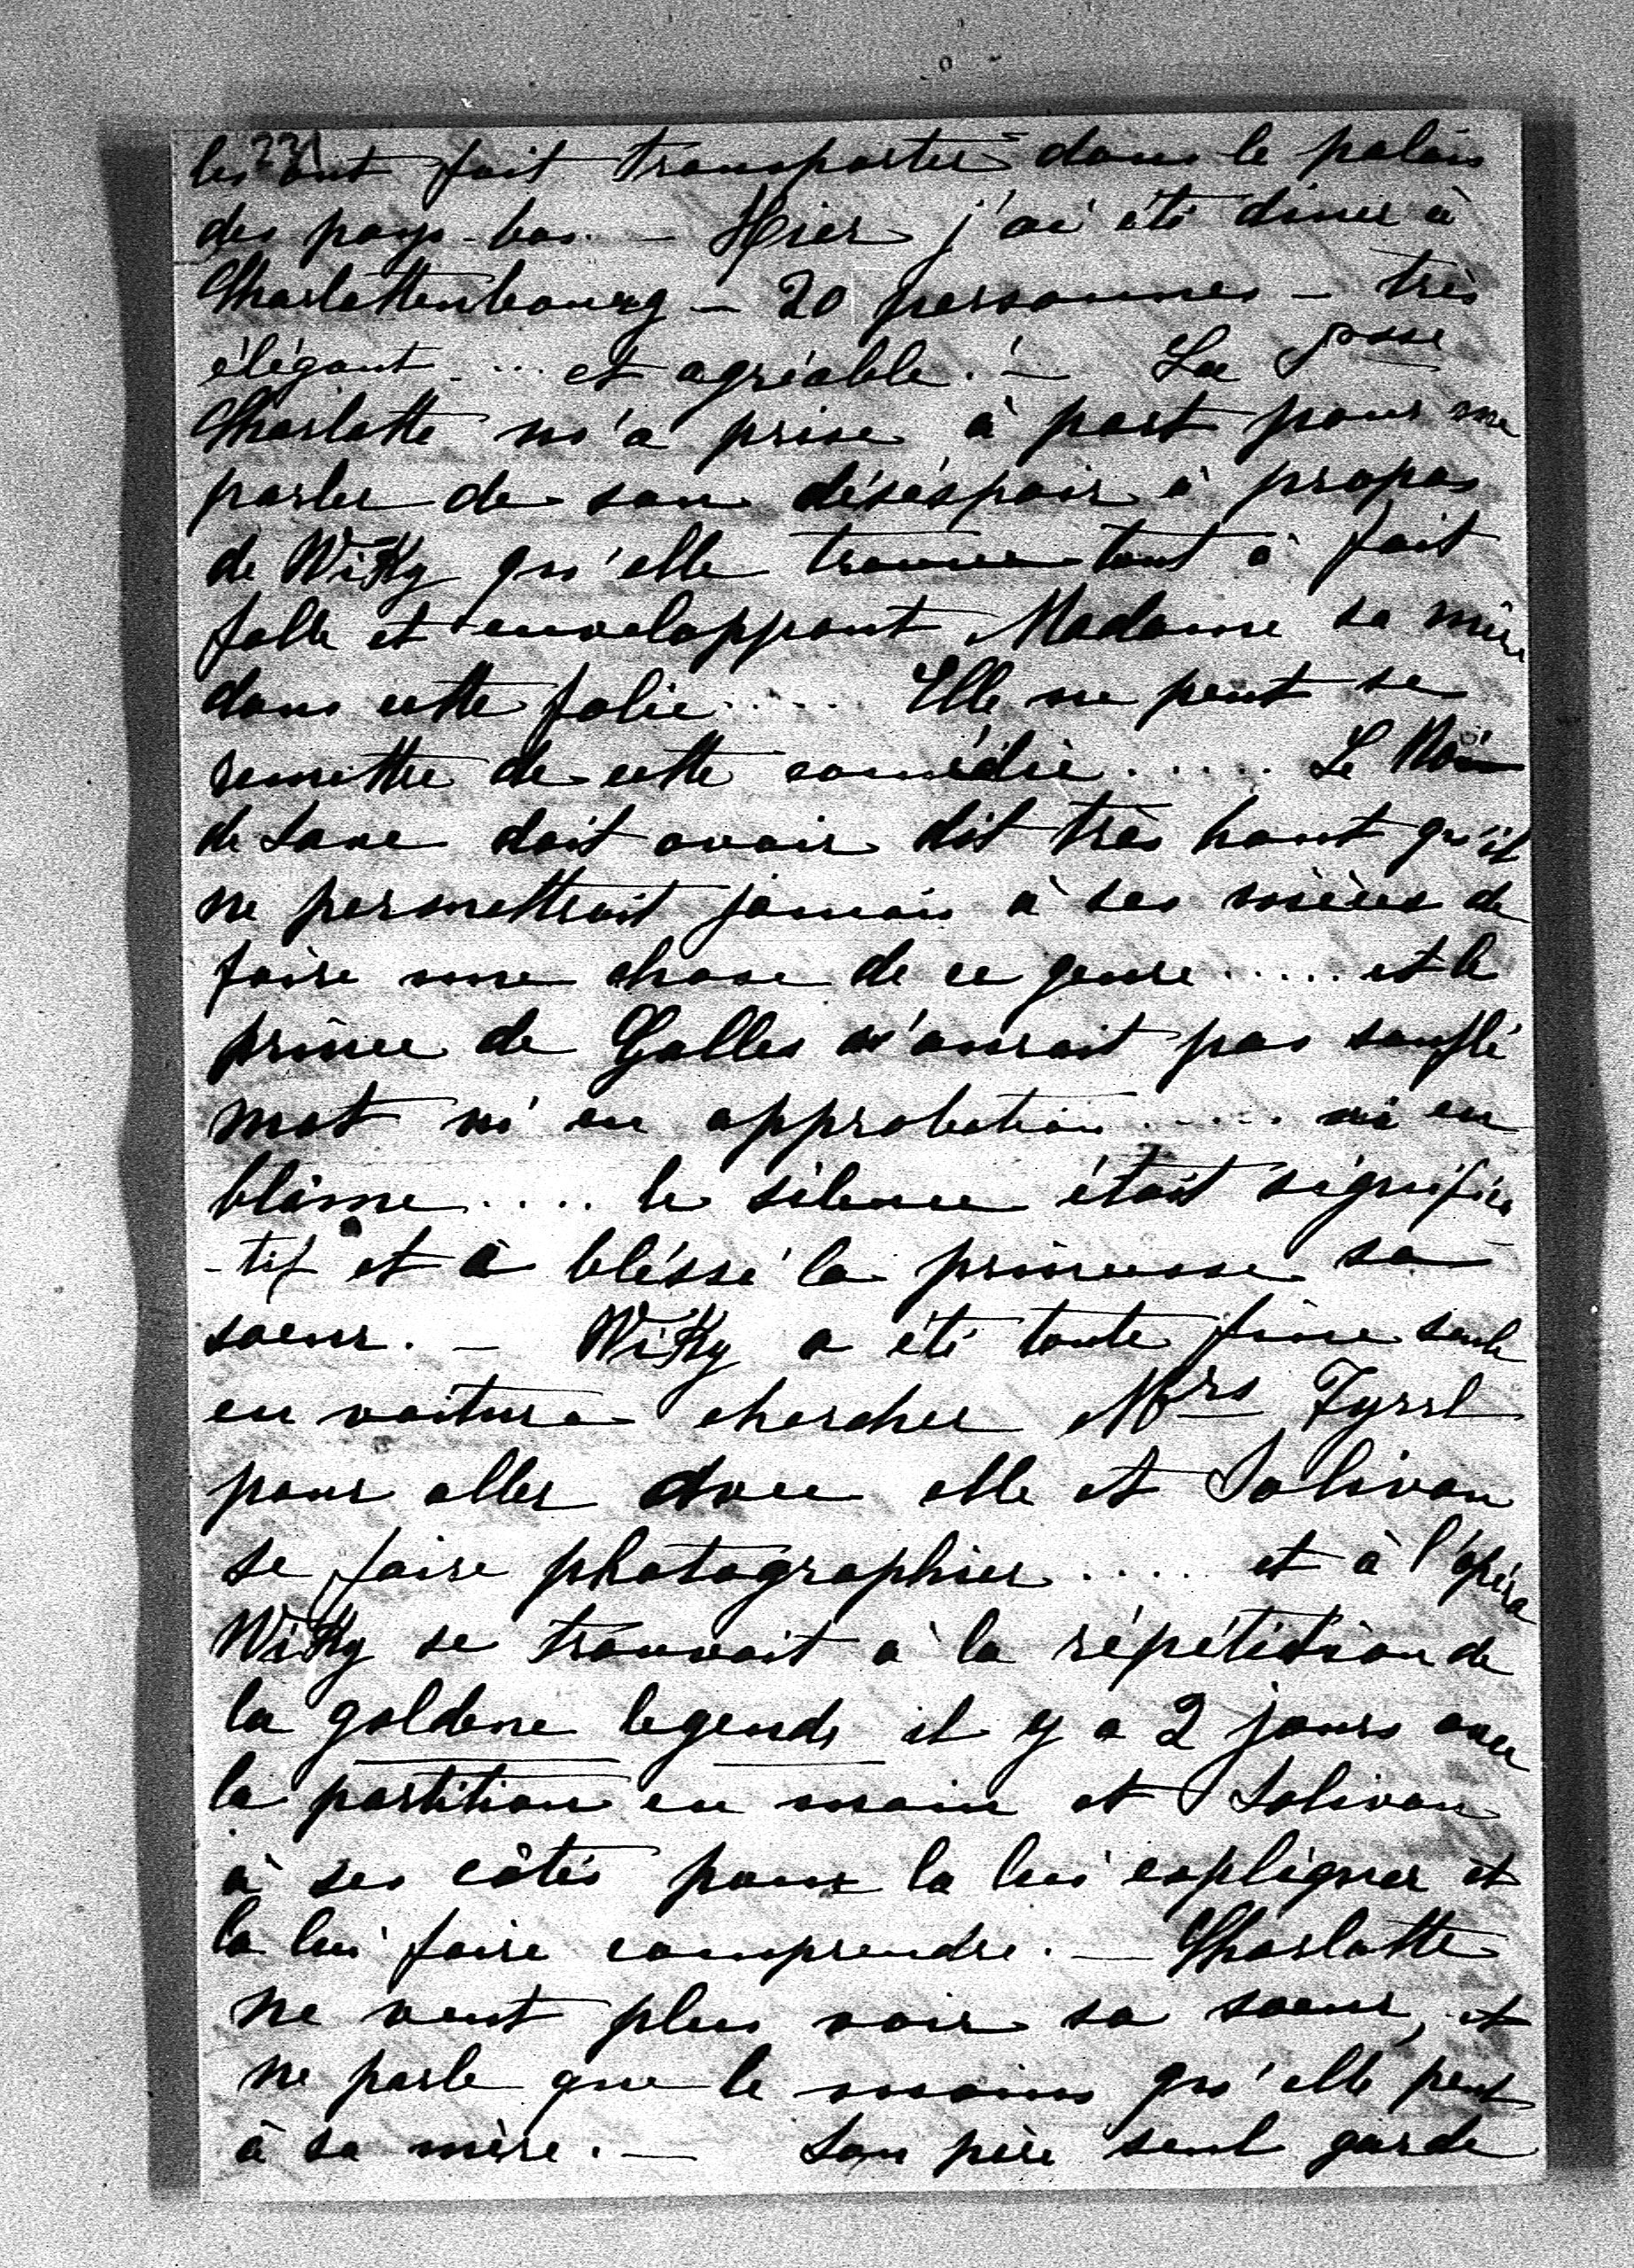 231
les ont fait transporter dans le palais
des pays-bas. — Hier j'ai été diner à
Charlottenbourg — 20 personnes — très
élégant .... et agréable. — La Psse
Charlotte m'a prise à part pour me
parler de son désèspoir à propos
de Wikky qu'elle trouve tout à fait
folle et enveloppant Madame sa mère
dans cette folie ..... Elle ne peut se
remettre de cette comédie ..... Le Roi
de Saxe doit avoir dit très haut qu'il
ne permettrait jamais à ses nièces de
faire une chose de ce genre ..... et le
prince de Galles n'aurait pas soufflé
mot ni en approbation ..... ni en
blâme .... le silence était significa
-tif et à bléssé la princesse sa
soeur. — Wikky a été toute fine seule
en voiture chercher Mrs Tyrrl
pour aller avec elle et Solivan
se faire photographier .... et à l'opéra
Wikky se trouvait à la répétition de
la goldene legende il y a 2 jours avec
la partition en main et Solivan
à ses côtés pour la lui expliquer et
la lui faire comprendre. — Charlotte
ne veut plus voir sa soeur, et
ne parle que le moins qu'elle peut
à sa mère. — Son père seul garde